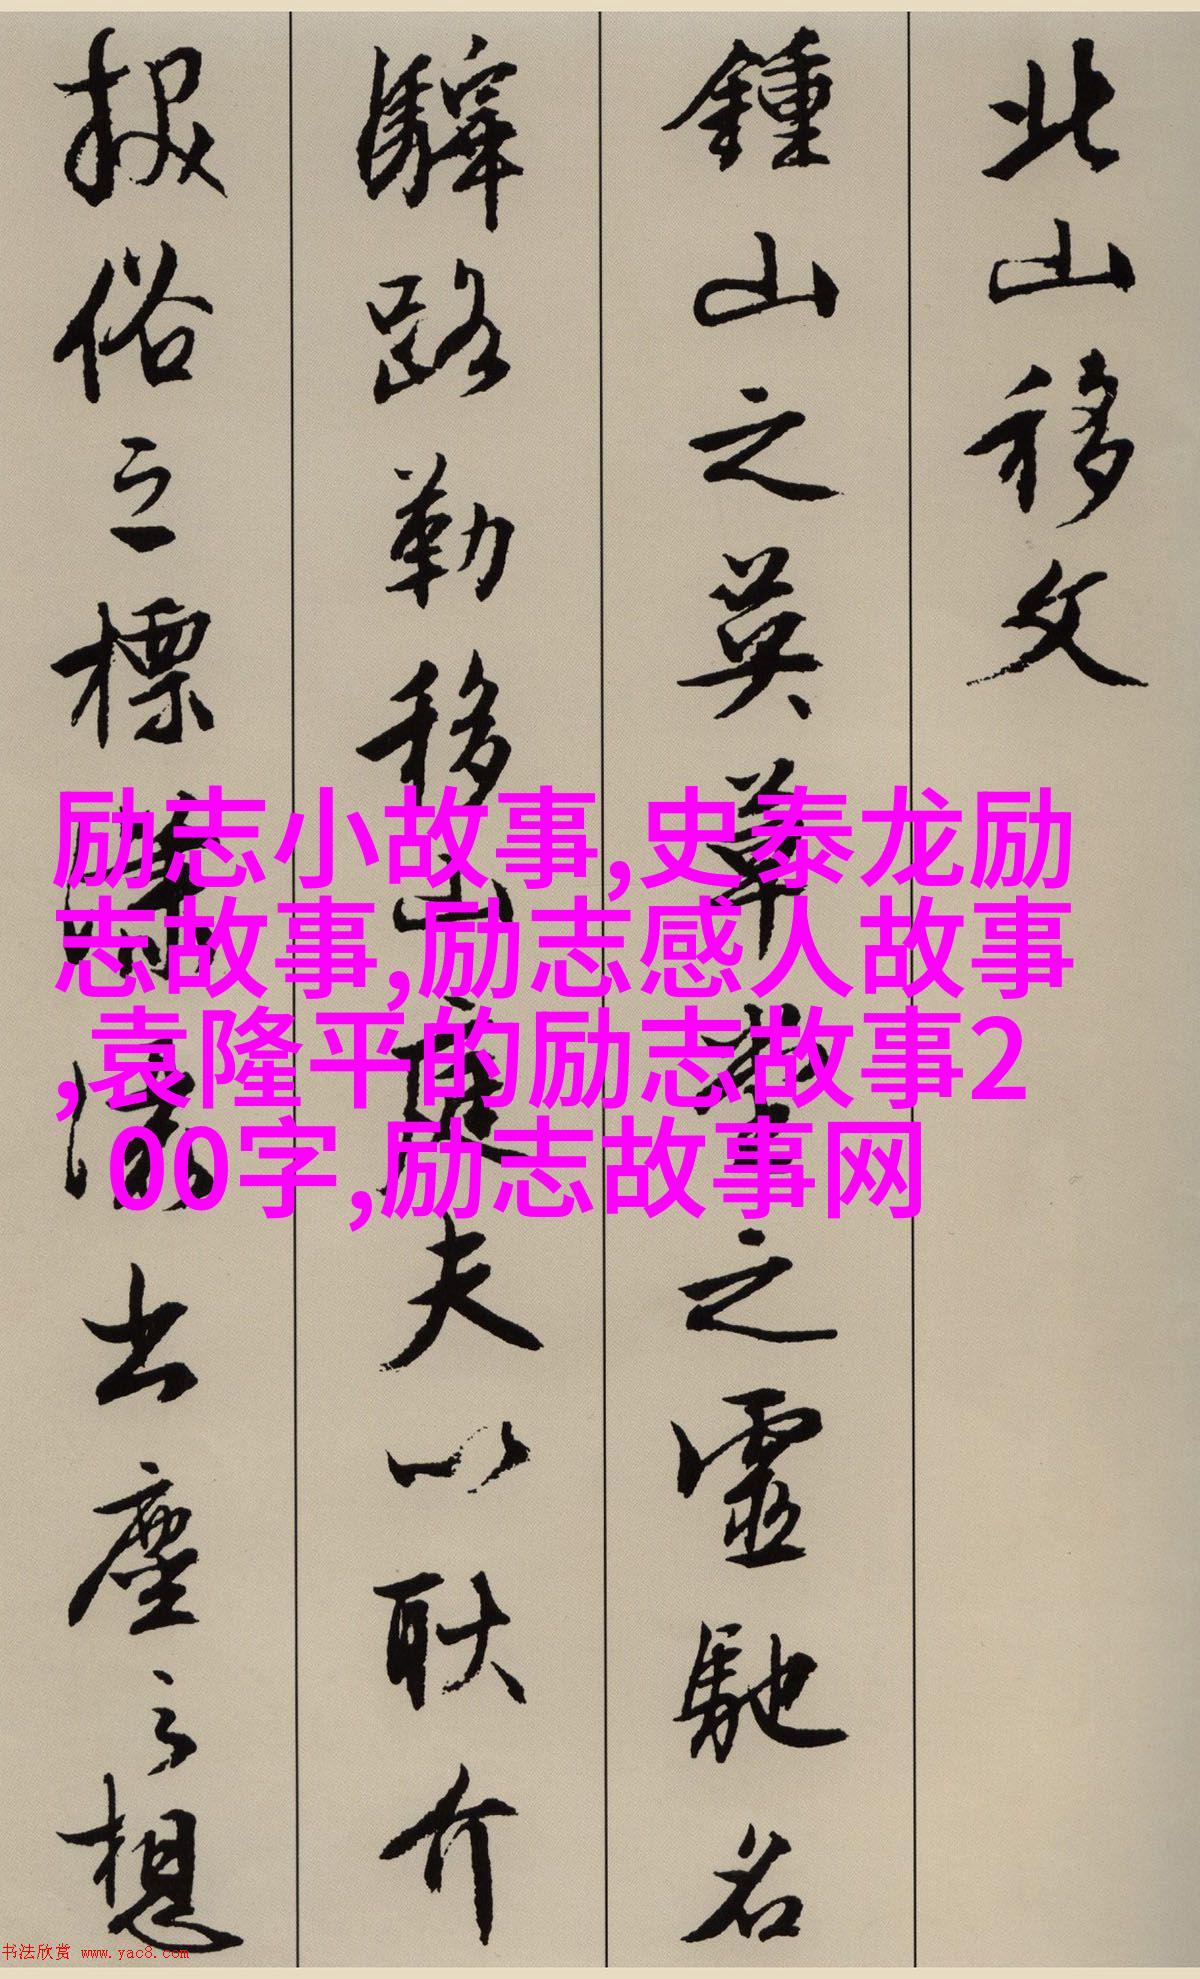 北山移文
鍾山之英草堂之靈馳名
驛路勒移山庭夫以耿介
拔俗之標瀟灑出塵之想
励志小故事,史泰龙励
志故事,励志感人故事
,袁隆平的励志故事2
00字,励志故事网
书法欣赏 www.yac8.com